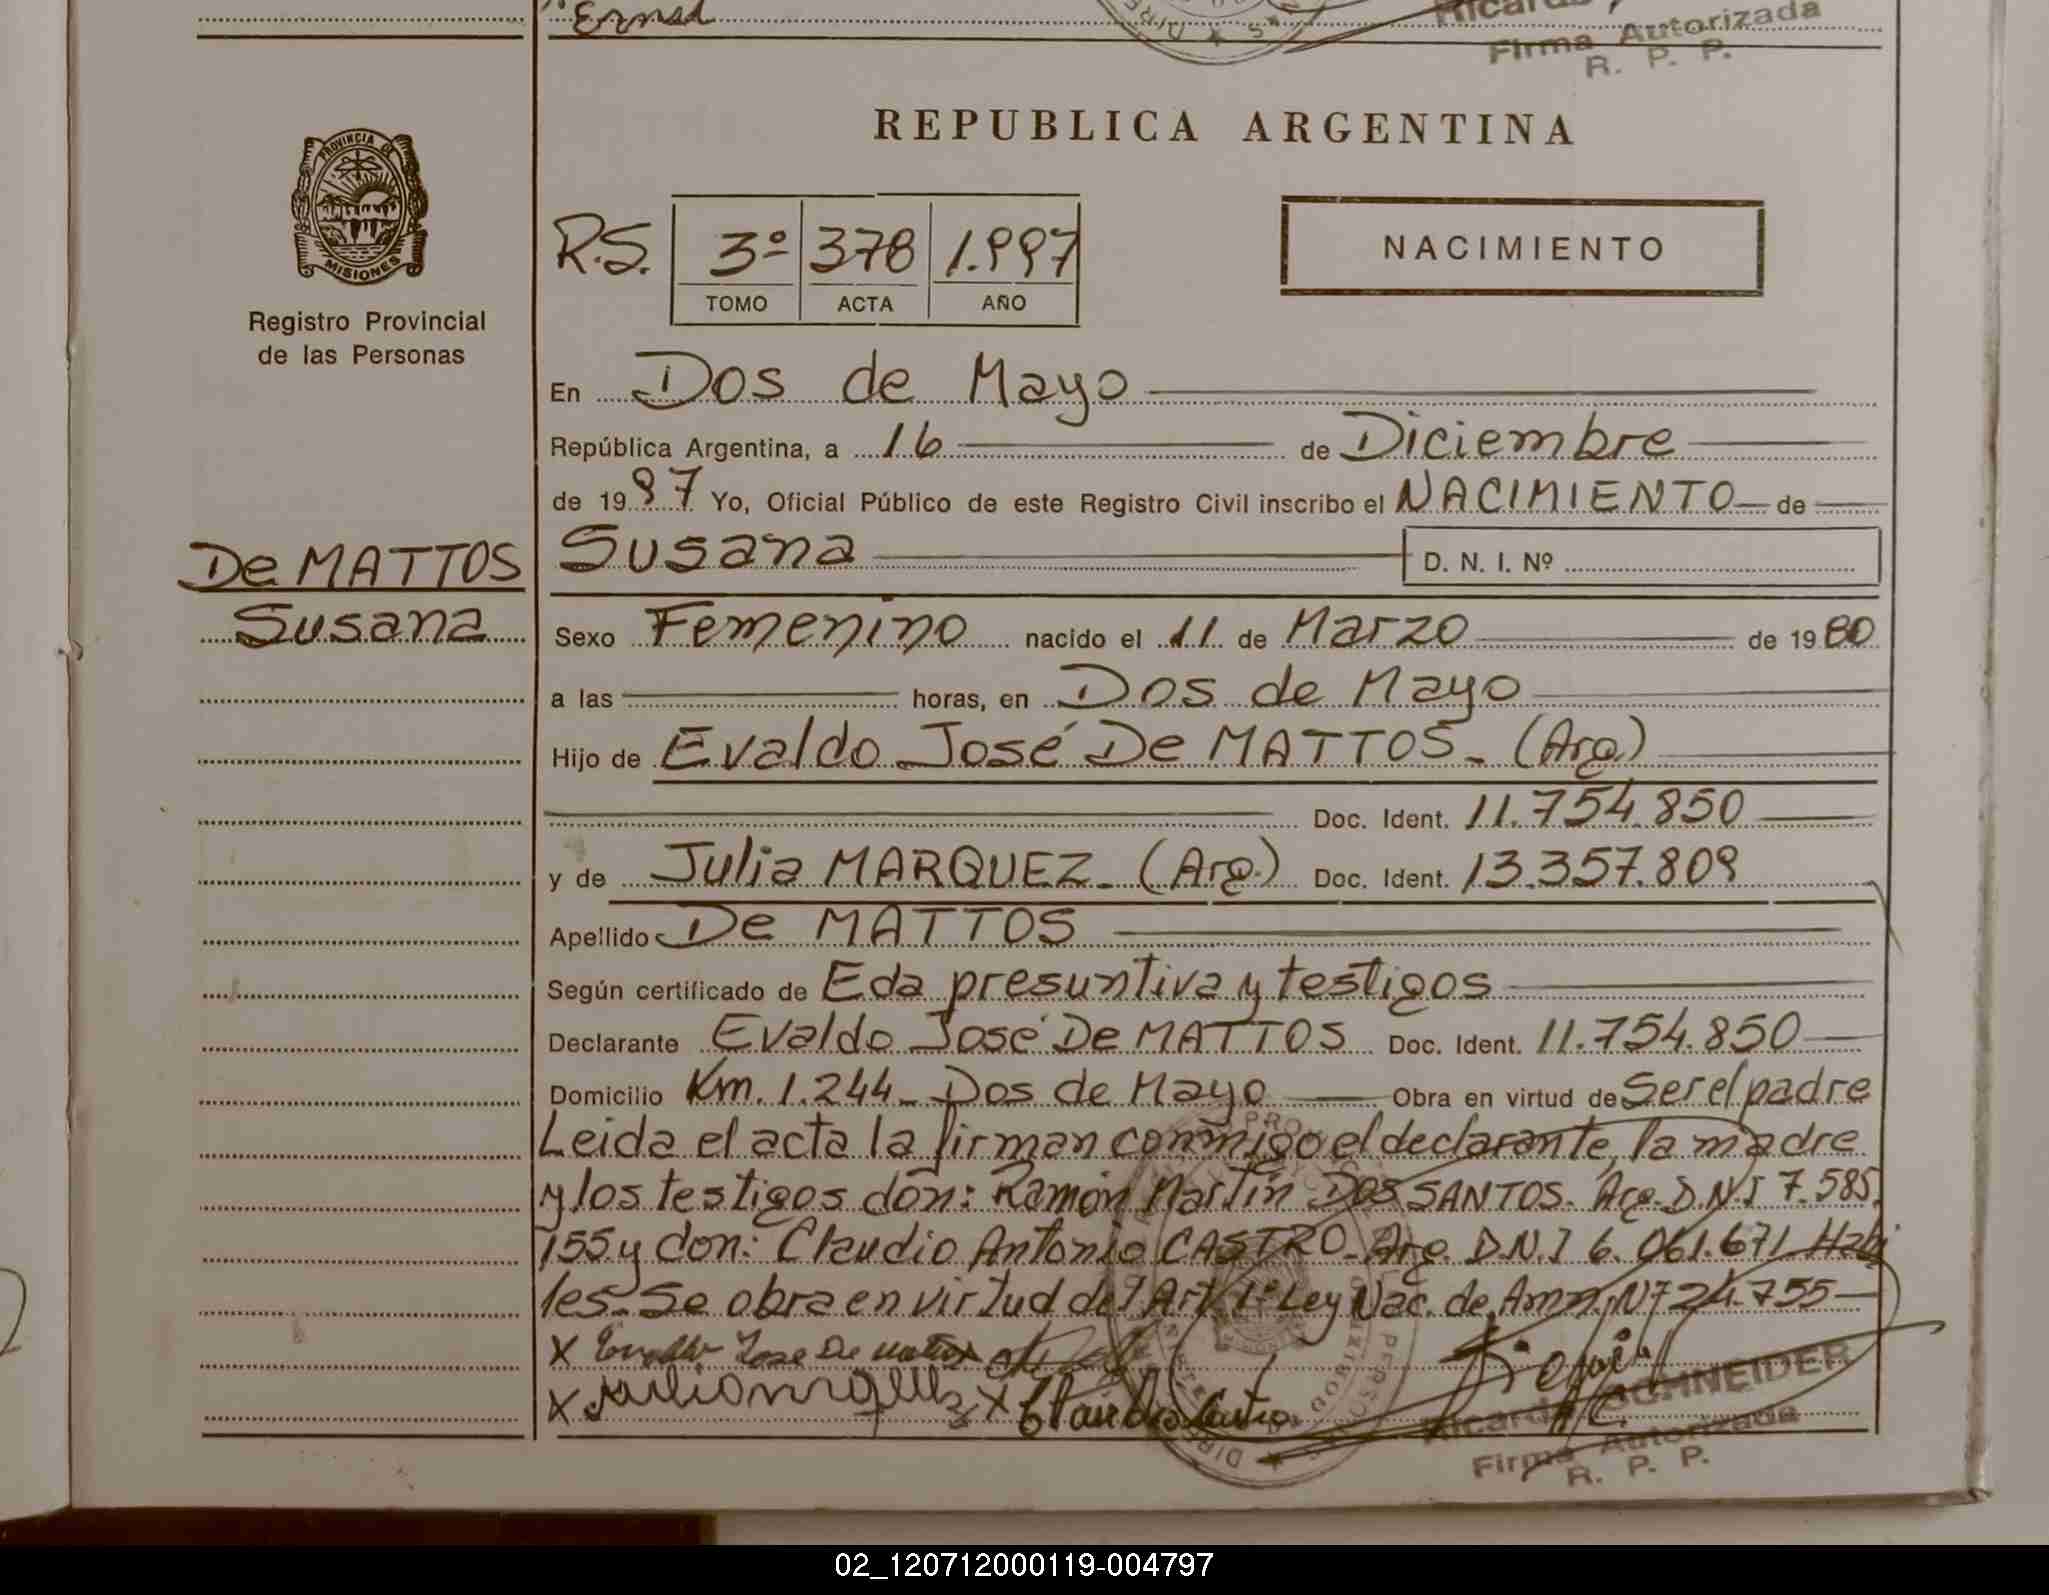 Ernst
Firma Autorizada
R. P. P.
REPUBLICA ARGENTINA
PROVINCIA DE
MISIONES
Registro Provincial
de las Personas
R.S. 3º 378 1.997
TOMO ACTA AÑO
NACIMIENTO
En Dos de Mayo
República Argentina, a 16 de Diciembre
de 1997 Yo, Oficial Público de este Registro Civil inscribo el NACIMIENTO de
De MATTOS
Susana
Susana D. N. I. Nº
Sexo Femenino nacido el 11 de Marzo de 1980
a las horas, en Dos de Mayo
Hijo de Evaldo José De MATTOS - (Arg.)
Doc. Ident. 11.754.850
y de Julia MARQUEZ - (Arg.) Doc. Ident. 13.357.809
Apellido De MATTOS
Según certificado de Eda presuntiva y testigos
Declarante Evaldo José De MATTOS Doc. Ident. 11.754.850
Domicilio Km. 1.244 - Dos de Mayo Obra en virtud de Ser el padre
Leida el acta la firman conmigo el declarante, la madre
y los testigos don: Ramón Martín DOS SANTOS. Arg. D.N.I 7.585.
155 y don: Claudio Antonio CASTRO - Arg. D.N.I 6.061.671 Habi
les. Se obra en virtud del Art. 1º Ley Nac. de Amn. Nº 24.755
X Jose De
X X Claudio Castro
Ricardo SCHNEIDER
Firma Autorizada
R. P. P.
02_120712000119-004797